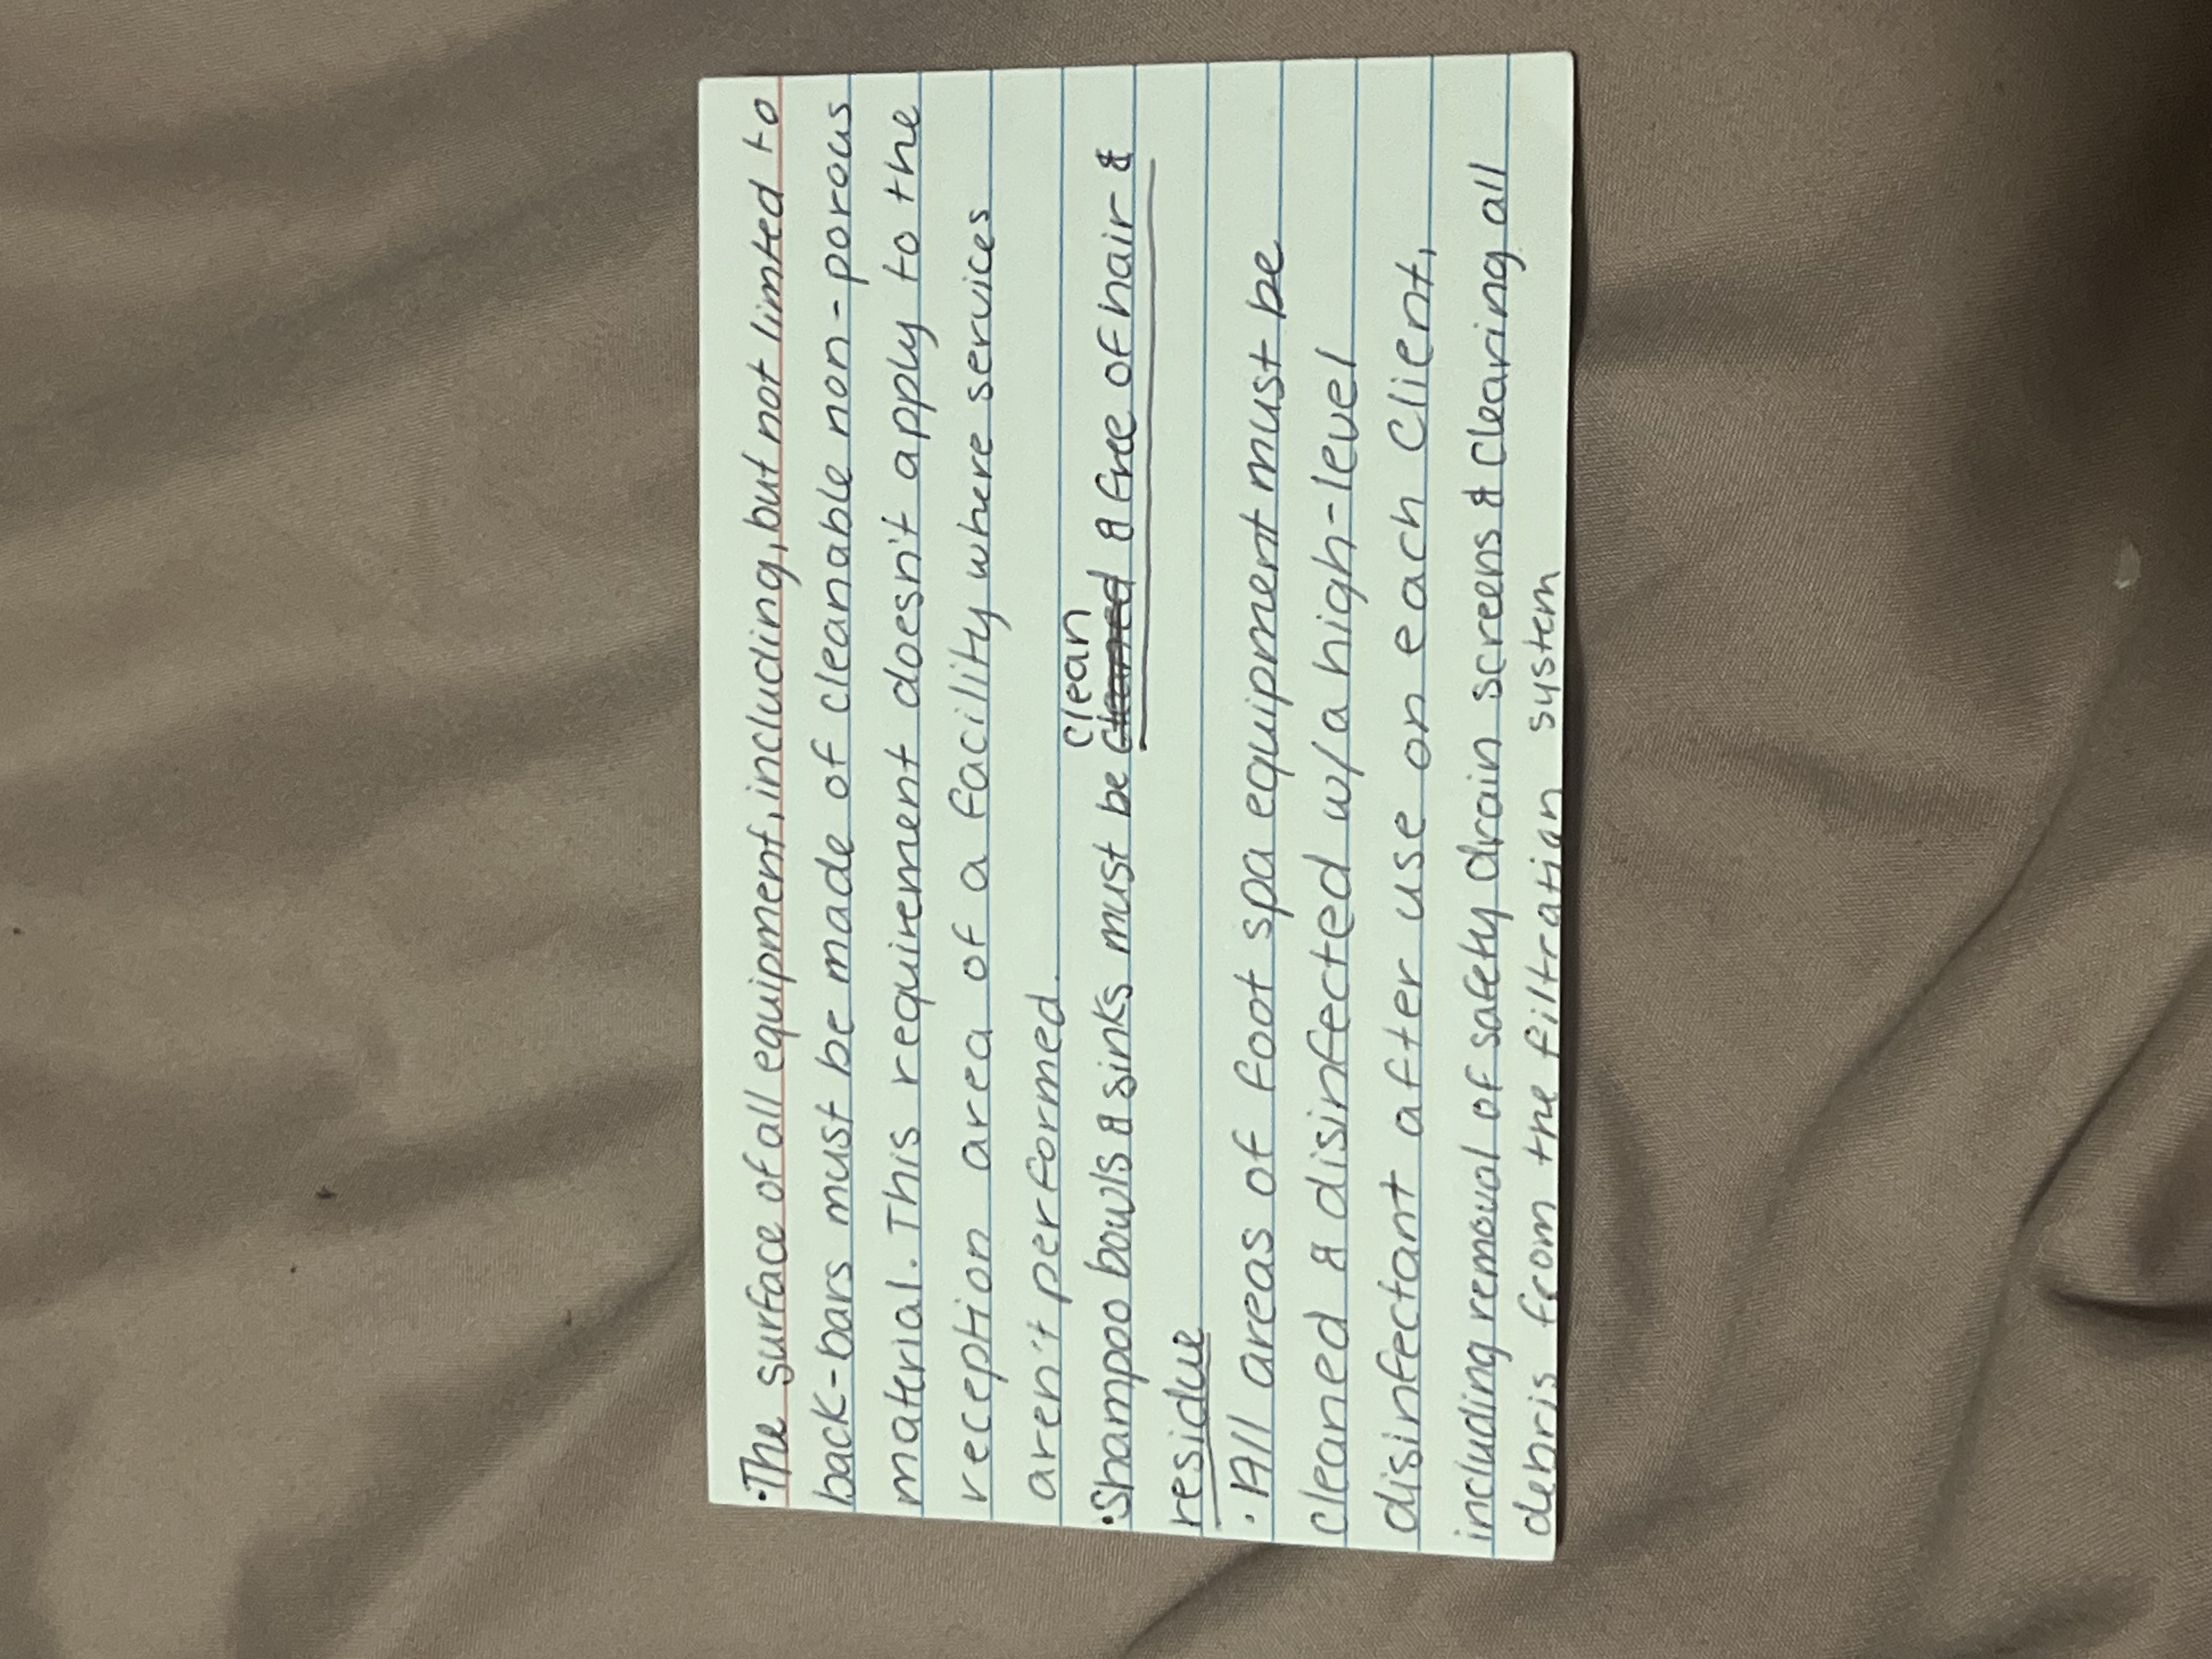 ·The surface of all equipment, including, but not limted to
back-bars must be made of cleanable non-porous
material. This requirement doesn't apply to the
reception area of a facility where services
aren't performed.
clean
·Shampoo bowls & sinks must be cleaned & free of hair &
residue
·All areas of foot spa equipment must be
cleaned & disinfected w/a high-level
disinfectant after use on each client,
including removal of safety drain screens & clearing all
debris from the filtration system